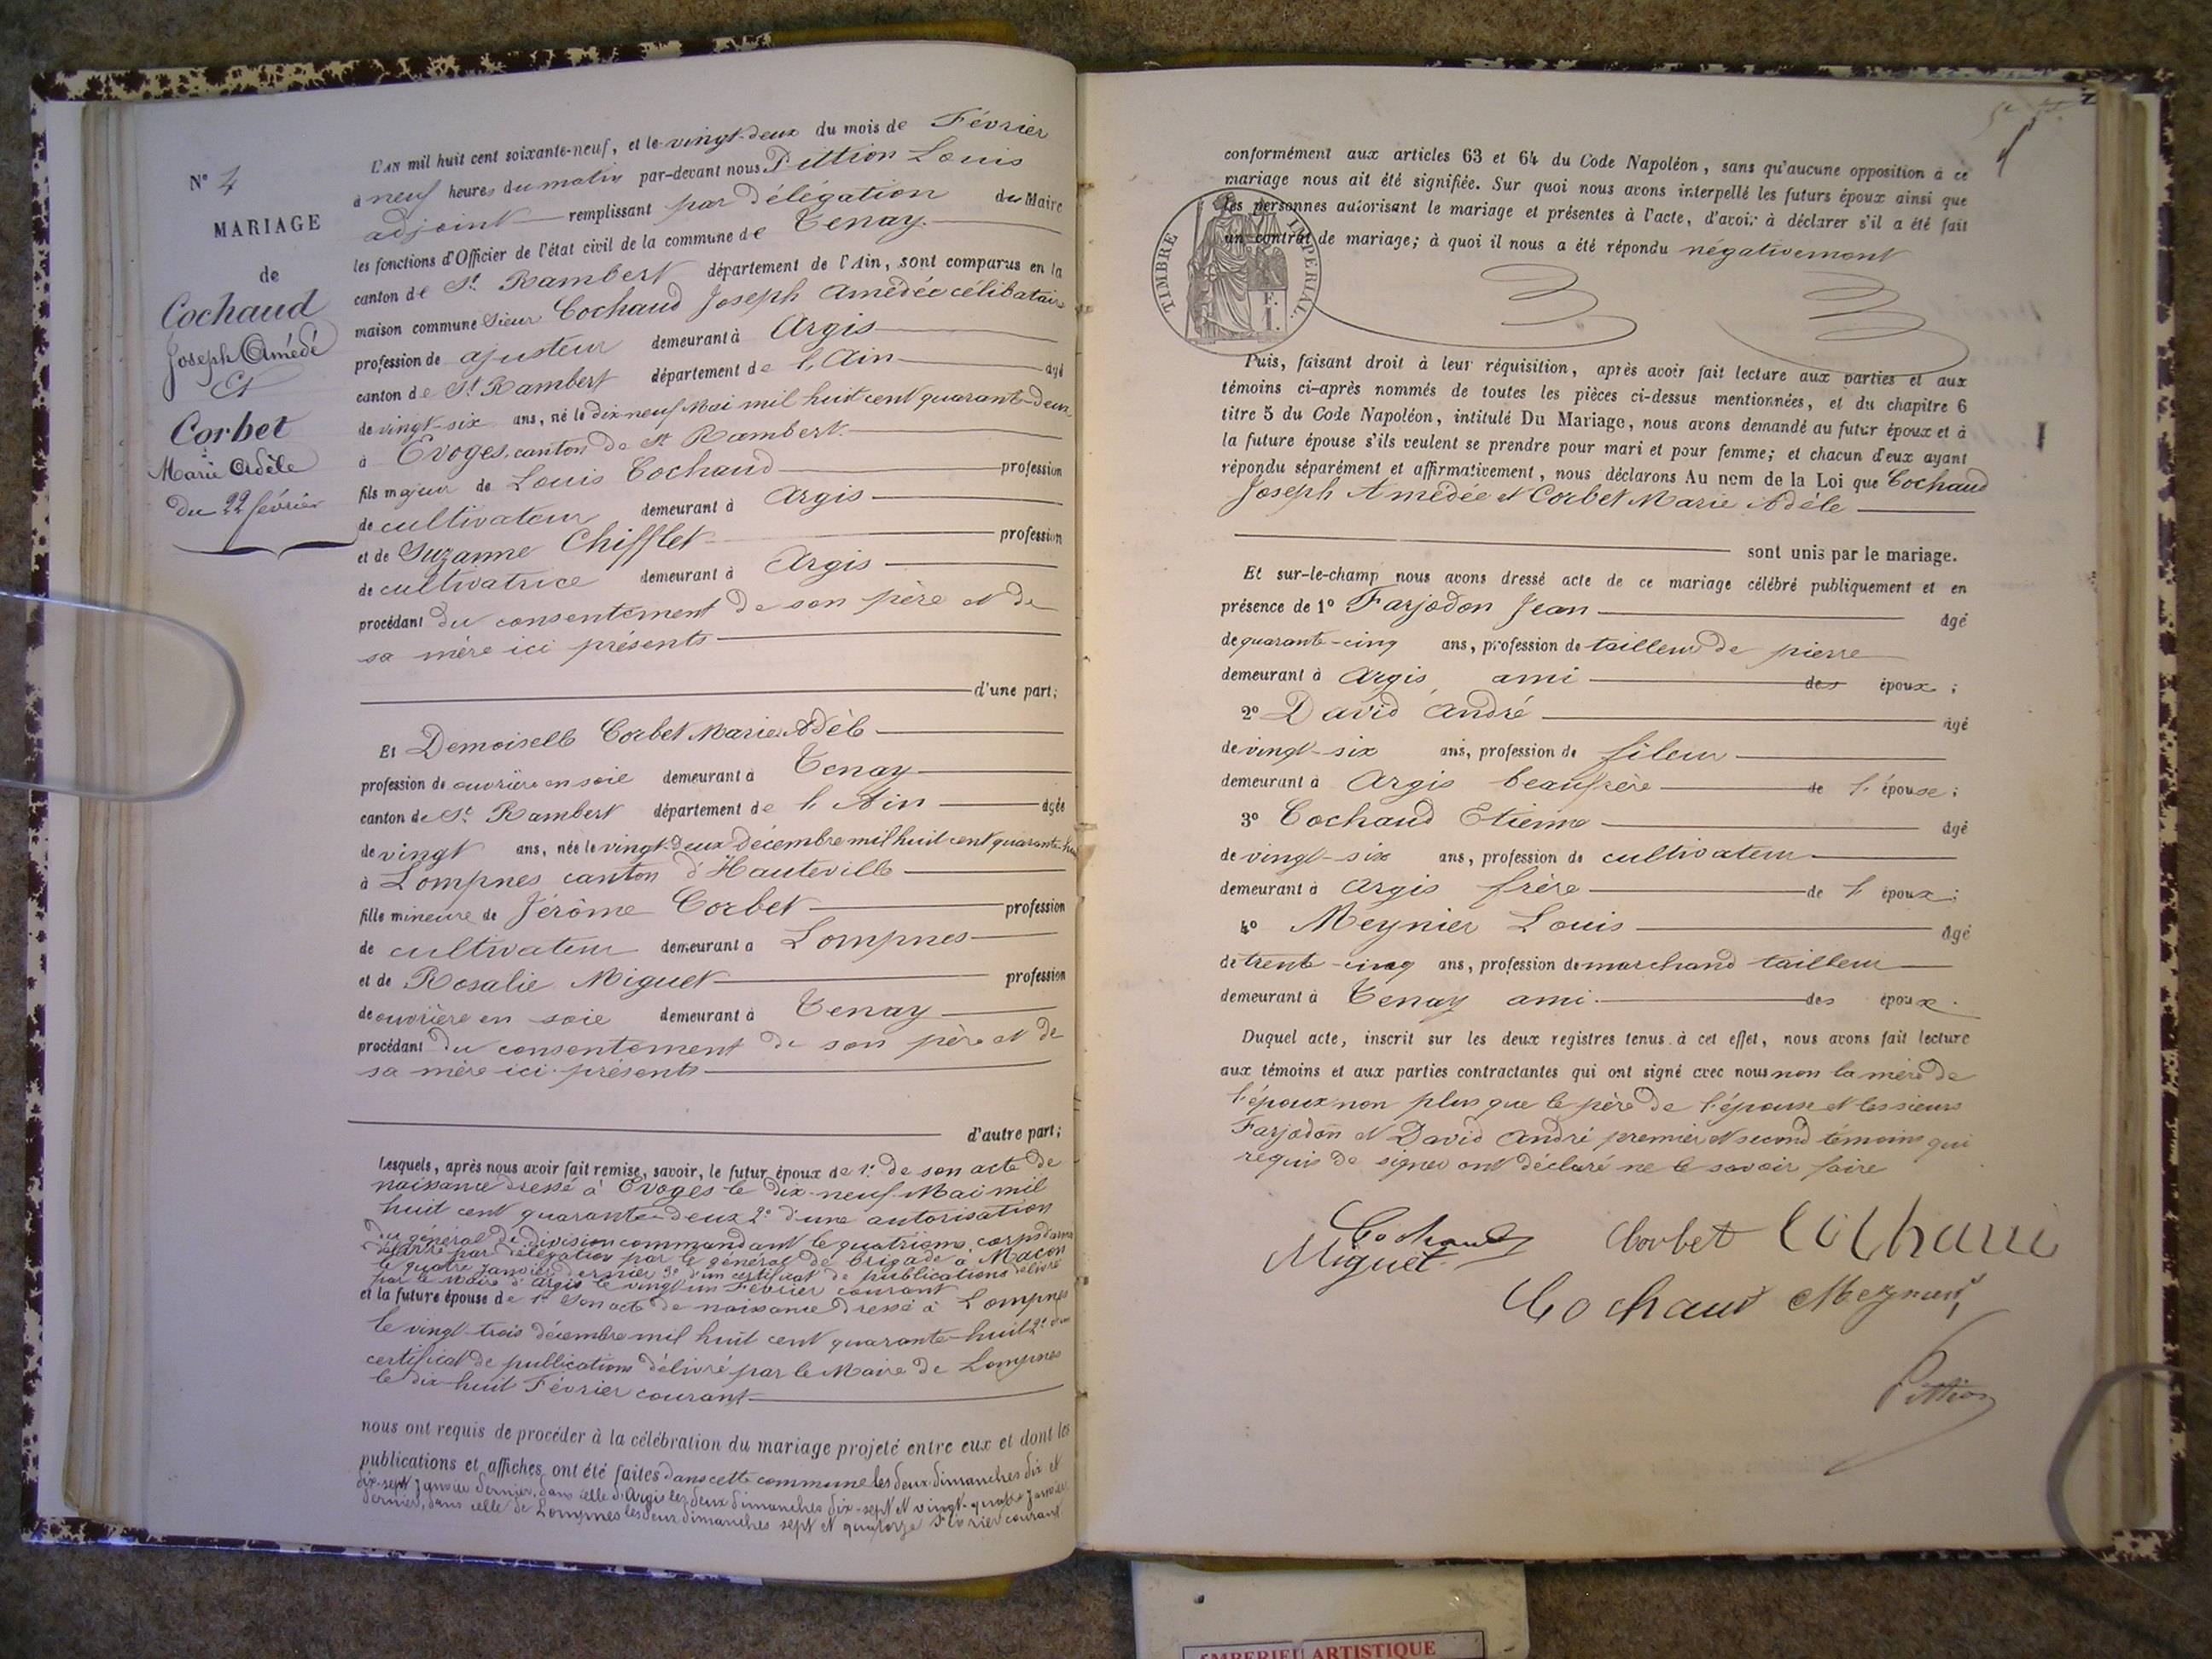 N° 4
MARIAGE
de
Cochaud
Joseph Amédé
Et
Corbet
Marie Adèle
du 22 février
L'AN mil huit cent soixante-neuf, et le vingt-deux du mois de Février
à neuf heures du matin par-devant nous Pittion Louis
adjoint remplissant par délégation du Maire
les fonctions d'Officier de l'état civil de la commune de Tenay
canton de St. Rambert département de l'Ain, sont comparus en la
maison commune Sieur Cochaud Joseph Amédée célibataire
profession de ajusteur demeurant à Argis
canton de St. Rambert département de l'Ain âgé
de vingt-six ans, né le dix-neuf Mai mil huit cent quarante-deux
à Evoges, canton de St Rambert
fils majeur de Louis Cochaud profession
de cultivateur demeurant à Argis
et de Suzanne Chifflet profession
de cultivatrice demeurant à Argis
procédant du consentement de son père et de
sa mère ici présents
d'une part;
Et Demoiselle Corbet Marie Adèle
profession de ouvrière en soie demeurant à Tenay
canton de St. Rambert département de l'Ain âgée
de vingt ans, née le vingt-deux décembre mil huit cent quarante-huit
à Lompnes canton d'Hauteville
fille mineure de Jérôme Corbet profession
de cultivateur demeurant à Lompnes
et de Rosalie Miguet profession
de ouvrière en soie demeurant à Tenay
procédant du consentement de son père et de
sa mère ici présents
d'autre part;
Lesquels, après nous avoir fait remise, savoir, le futur époux de 1° de son acte de
naissance dressé à Evoges le dix-neuf Mai mil
huit cent quarante-deux 2° d'une autorisation
du général de division commandant le quatrième corps d'armée
délivré par délégation par le général de brigade à Macon
le quatre janvier dernier 3° d'un certificat de publications délivré
par le Maire d'Argis le vingt un Février courant
et la future épouse de 1° Son acte de naissance dressé à Lompnes
le vingt-trois décembre mil huit cent quarante-huit 2° d'un
certificat de publications délivré par le Maire de Lompnes
le dix-huit Février courant
nous ont requis de procéder à la célébration du mariage projeté entre eux et dont les
publications et affiches ont été faites dans cette commune les deux dimanches dix et
dix-sept Janvier dernier, dans celle d'Argis les deux dimanches dix-sept et vingt-quatre Janvier
dernier, dans celle de Lompnes les deux dimanches sept et quatorze Février courant
conformément aux articles 63 et 64 du Code Napoléon, sans qu'aucune opposition à ce
mariage nous ait été signifiée. Sur quoi nous avons interpellé les futurs époux ainsi que
les personnes autorisant le mariage et présentes à l'acte, d'avoir à déclarer s'il a été fait
un contrat de mariage; à quoi il nous a été répondu négativement
TIMBRE IMPERIAL.
F.
I.
Puis, faisant droit à leur réquisition, après avoir fait lecture aux parties et aux
témoins ci-après nommés de toutes les pièces ci-dessus mentionnées, et du chapitre 6
titre 5 du Code Napoléon, intitulé Du Mariage, nous avons demandé au futur époux et à
la future épouse s'ils veulent se prendre pour mari et pour femme; et chacun d'eux ayant
répondu séparément et affirmativement, nous déclarons Au nom de la Loi que Cochaud
Joseph Amédée et Corbet Marie Adèle
sont unis par le mariage.
Et sur-le-champ nous avons dressé acte de ce mariage célébré publiquement et en
présence de 1° Farjodon Jean âgé
de quarante-cinq ans, profession de tailleur de pierre
demeurant à Argis ami des époux;
2° David André âgé
de vingt-six ans, profession de fileur
demeurant à Argis beaufrère de l'épouse;
3° Cochaud Etienne âgé
de vingt-six ans, profession de cultivateur
demeurant à Argis frère de l'époux;
4° Meynier Louis âgé
de trente-cinq ans, profession de marchand tailleur
demeurant à Tenay ami des époux.
Duquel acte, inscrit sur les deux registres tenus à cet effet, nous avons fait lecture
aux témoins et aux parties contractantes qui ont signé avec nous non la mère de
l'époux non plus que le père de l'épouse et les sieurs
Farjodon et David André premier et second témoins qui
requis de signer ont déclaré ne le savoir faire
Cochaud Corbet Cochaud
Miguet
Cochaud Meynier
Pittion
AMBERIEU ARTISTIQUE